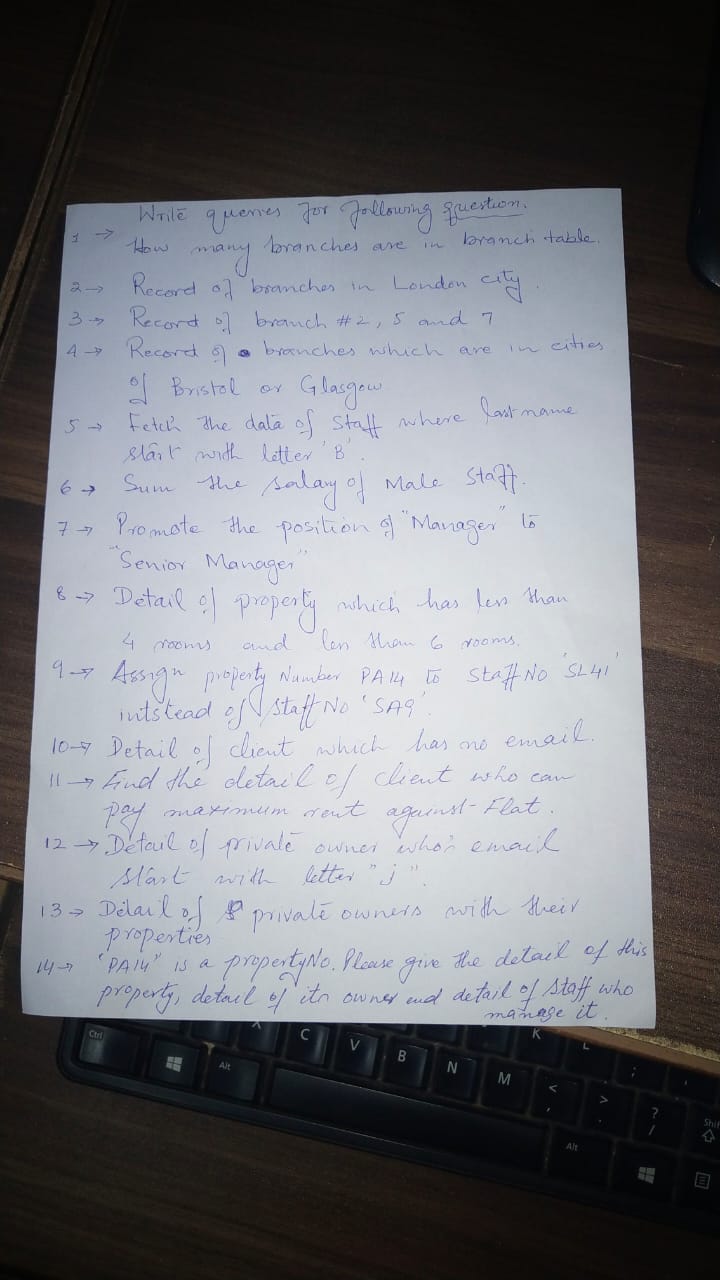 Write queries for following question.
1 → How many branches are in branch table.
2 → Record of branches in London city.
3 → Record of branch #2, 5 and 7
4 → Record of branches which are in cities
of Bristol or Glasgow
5 → Fetch the data of Staff where last name
start with letter 'B'.
6 → Sum the salary of Male Staff.
7 → Promote the position of "Manager" to
"Senior Manager"
8 → Detail of property which has less than
4 rooms and less than 6 rooms.
9 → Assign property Number PA14 to Staff No 'SL41'
intstead of Staff No 'SA9'.
10 → Detail of client which has no email.
11 → Find the detail of client who can
pay maximum rent against Flat.
12 → Detail of private owner who's email
start with letter "j".
13 → Detail of private owners with their
properties
14 → "PA14" is a propertyNo. Please give the detail of this
property, detail of its owner and detail of Staff who
manage it.
Ctrl Alt X C V B N M K L ; < > ? / Alt Shif